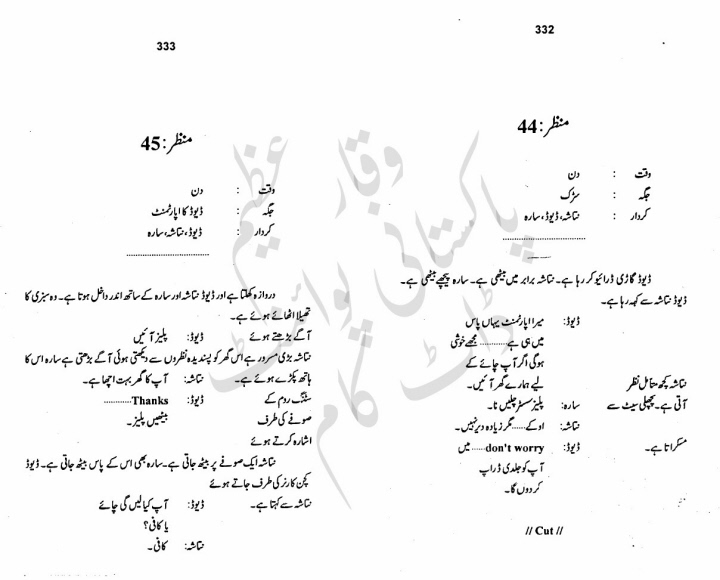 332
منظر:44
وقت : دن
جگہ : سڑک
کردار : نتاشہ، ڈیوڈ، سارہ
ڈیوڈ گاڑی ڈرائیو کر رہا ہے۔ نتاشہ برابر میں بیٹھی ہے۔ سارہ پیچھے بیٹھی ہے۔
ڈیوڈ نتاشہ سے کہہ رہا ہے۔
ڈیوڈ: میرا اپارٹمنٹ یہاں پاس
میں ہی ہے............ مجھے خوشی
ہوگی اگر آپ چائے کے
نتاشہ کچھ متامل نظر لیے ہمارے گھر آئیں۔
آتی ہے۔ پچھلی سیٹ سے سارہ: پلیز سسٹر چلیں نا۔
نتاشہ: اوکے......مگر زیادہ دیر نہیں۔
مسکراتا ہے۔ ڈیوڈ: don't worry......میں
آپ کو جلدی ڈراپ
کر دوں گا۔
// Cut //
333
منظر:45
وقت : دن
جگہ : ڈیوڈ کا اپارٹمنٹ
کردار : ڈیوڈ، نتاشہ، سارہ
دروازہ کھلتا ہے اور ڈیوڈ نتاشہ اور سارہ کے ساتھ اندر داخل ہوتا ہے۔ وہ سبزی کا
تھیلا اٹھائے ہوئے ہے۔
آگے بڑھتے ہوئے ڈیوڈ: پلیز آئیں
نتاشہ بڑی مسرور ہے اس گھر کو پسندیدہ نظروں سے دیکھتی ہوئی آگے بڑھتی ہے سارہ اس کا
ہاتھ پکڑے ہوئے ہے۔ نتاشہ: آپ کا گھر بہت اچھا ہے۔
سٹنگ روم کے ڈیوڈ: Thanks............
صوفے کی طرف بیٹھیں پلیز۔
اشارہ کرتے ہوئے
نتاشہ ایک صوفے پر بیٹھ جاتی ہے۔ سارہ بھی اس کے پاس بیٹھ جاتی ہے۔ ڈیوڈ
کچن کارنر کی طرف جاتے ہوئے
نتاشہ سے کہتا ہے۔ ڈیوڈ: آپ کیا لیں گی چائے
یا کافی؟
نتاشہ: کافی۔
وقار عظیم
پاکستانی پوائنٹ
ڈاٹ کام